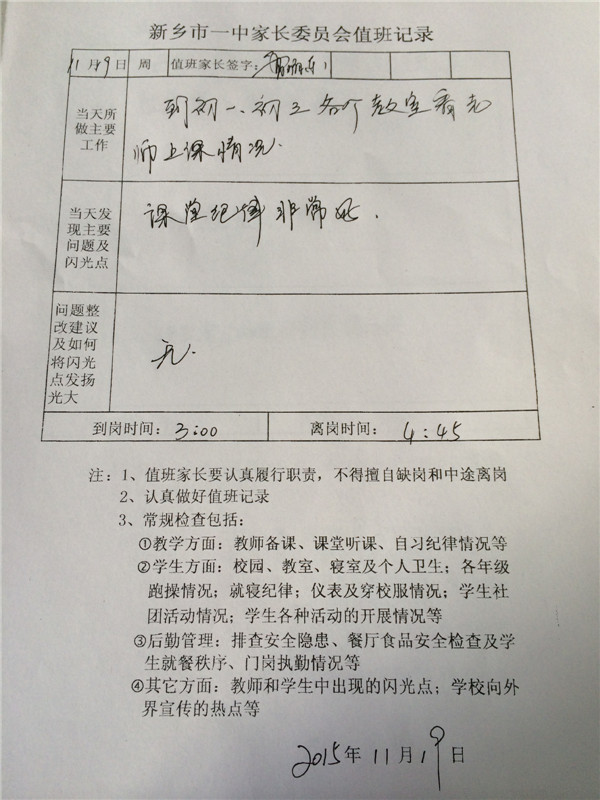 新乡市一中家长委员会值班记录
11月19日 周 值班家长签字:
当天所
做主要
工作
到初一、初三各个教室看老
师上课情况.
当天发
现主要
问题及
闪光点
课堂纪律非常好.
问题整
改建议
及如何
将闪光
点发扬
光大
无.
到岗时间: 3:00 离岗时间: 4:45
注: 1、值班家长要认真履行职责，不得擅自缺岗和中途离岗
2、认真做好值班记录
3、常规检查包括:
①教学方面: 教师备课、课堂听课、自习纪律情况等
②学生方面: 校园、教室、寝室及个人卫生; 各年级
跑操情况; 就寝纪律; 仪表及穿校服情况; 学生社
团活动情况; 学生各种活动的开展情况等
③后勤管理: 排查安全隐患、餐厅食品安全检查及学
生就餐秩序、门岗执勤情况等
④其它方面: 教师和学生中出现的闪光点; 学校向外
界宣传的热点等
2015年11月19日